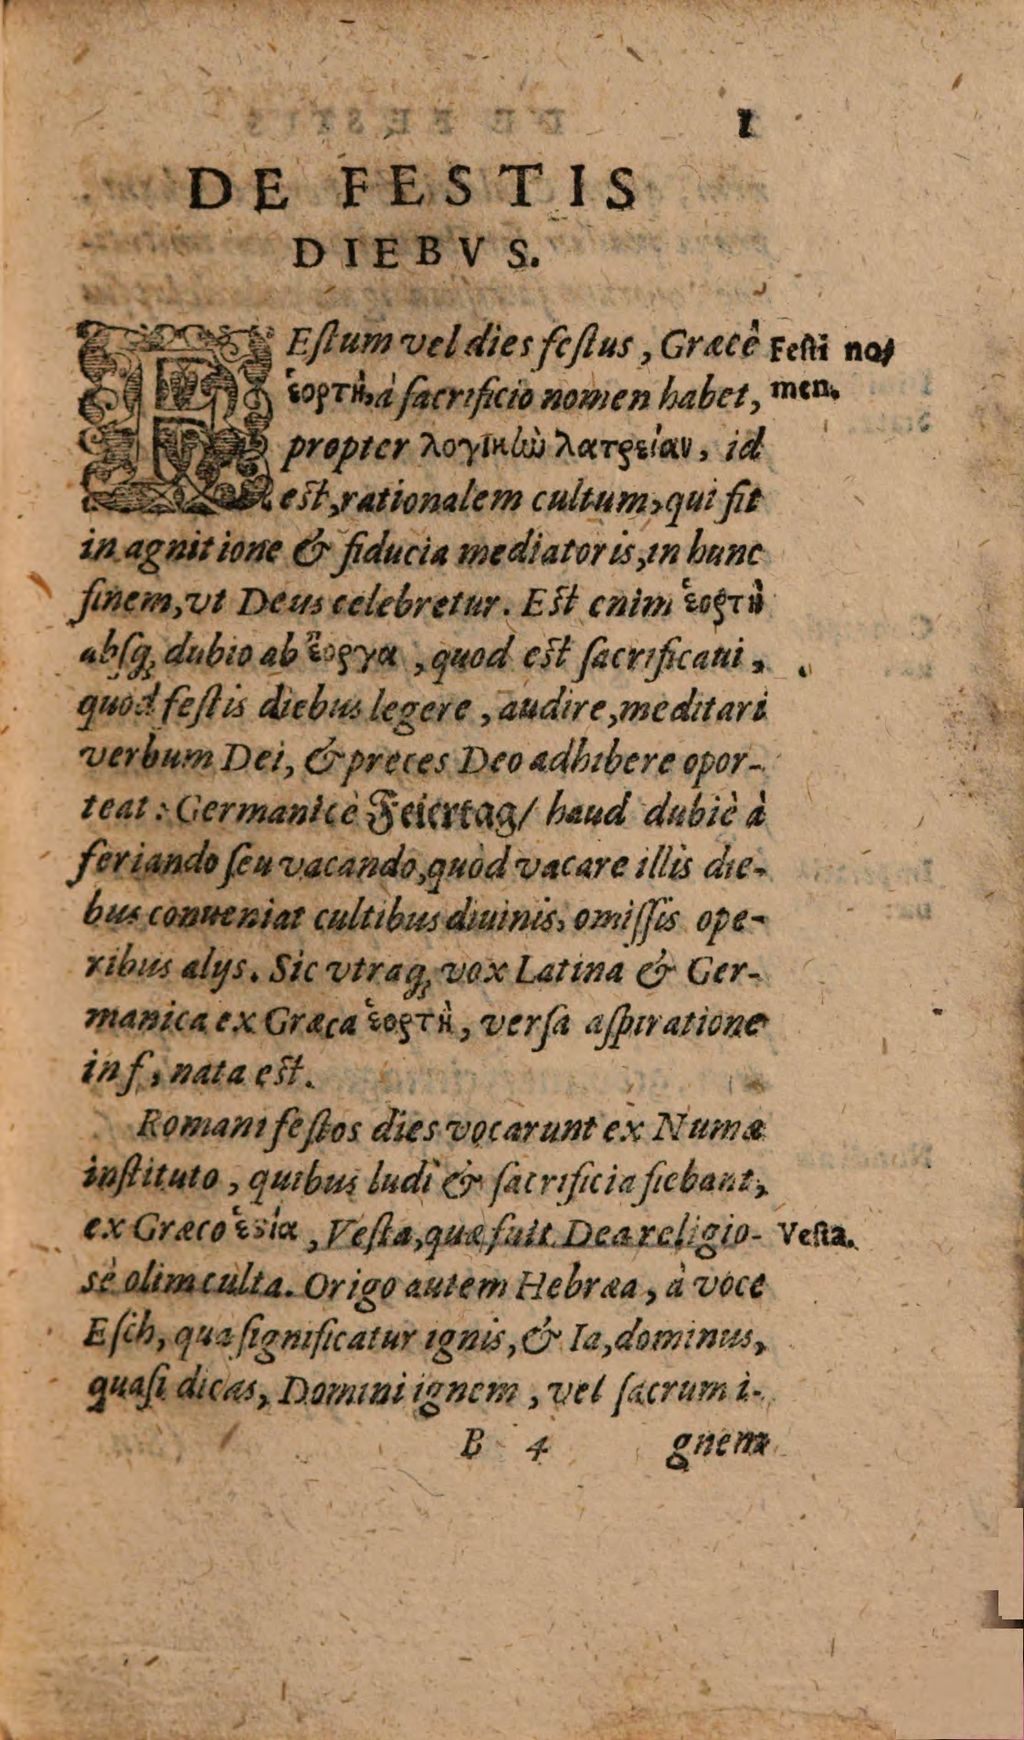 1
DE FESTIS
DIEBVS.
FEſtum vel dies feſtus, Græcè
ἑορτὴ, à ſacrificio nomen habet,
propter λογικὴν λατρείαν, id
eſt, rationalem cultum, qui fit
in agnitione & fiducia mediatoris, in hunc
finem, vt Deus celebretur. Eſt enim ἑορτὴ
abſq; dubio ab ἔοργα, quod eſt ſacrificaui,
quod feſtis diebus legere, audire, meditari
verbum Dei, & preces Deo adhibere opor-
teat: Germanicè Feiertag/ haud dubiè à
feriando ſeu vacando, quòd vacare illis die-
bus conueniat cultibus diuinis, omiſſis ope-
ribus alijs. Sic vtraq; vox Latina & Ger-
manica ex Græca ἑορτὴ, verſa aſpiratione
in f, nata eſt.
Romani feſtos dies vocarunt ex Numæ
inſtituto, quibus ludi & ſacrificia fiebant,
ex Græco ἑϛία, Veſta, quæ fuit Dea religio-
sè olim culta. Origo autem Hebræa, à voce
Eſch, qua ſignificatur ignis, & Ia, dominus,
quaſi dicas, Domini ignem, vel ſacrum i-
B 4 gnem
Feſti no-
men.
Veſta.